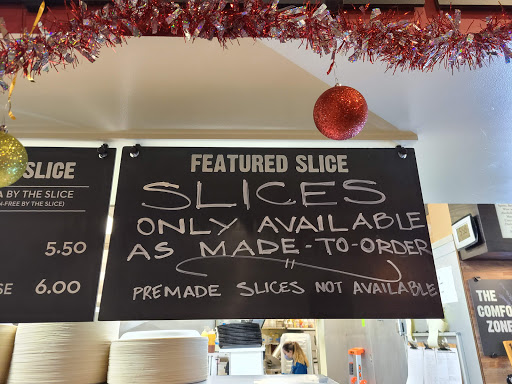 SLICE
BY THE SLICE
-FREE BY THE SLICE)
5.50
6.00
FEATURED SLICE
SLICES
ONLY AVAILABLE
AS MADE-TO-ORDER
PREMADE SLICES NOT AVAILABLE
THE
COMFO
ZONE